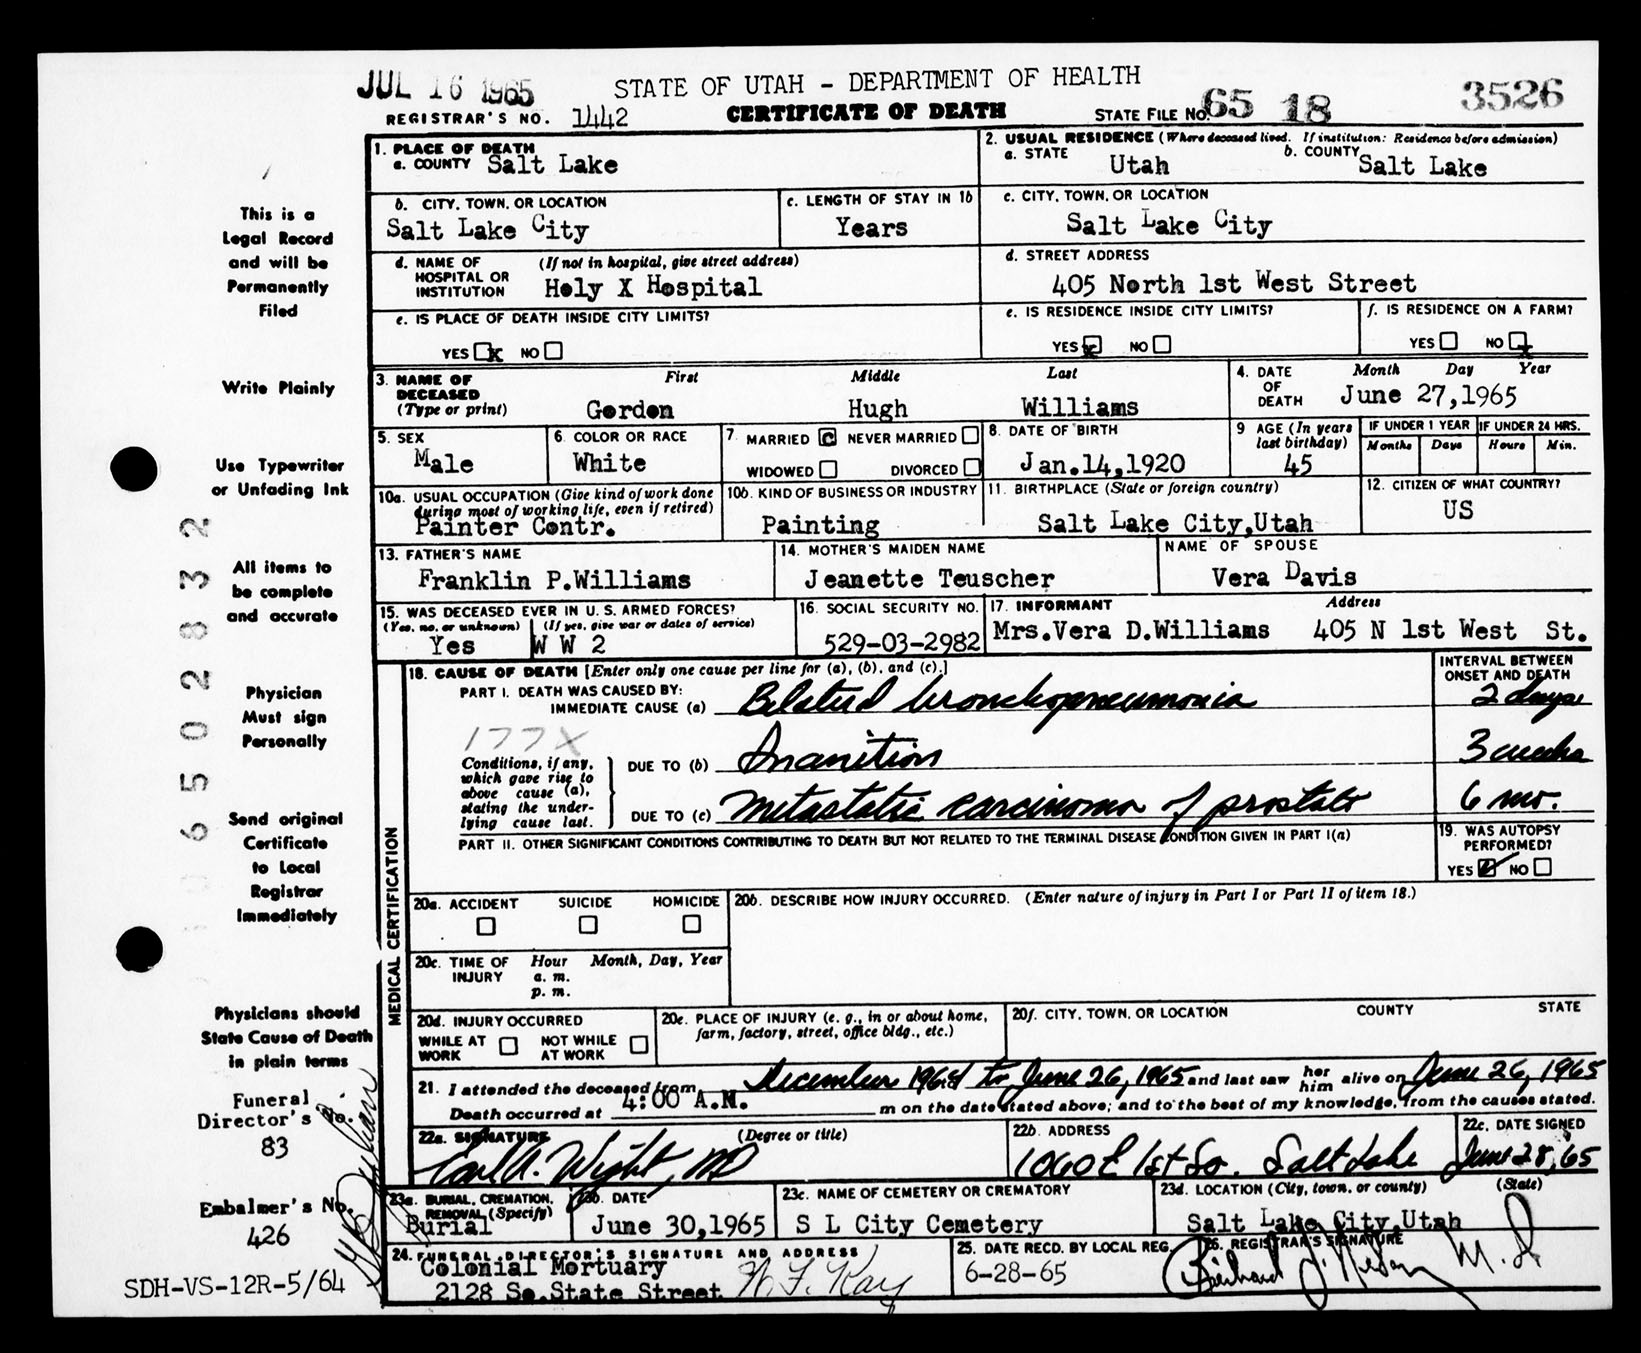 JUL 16 1965
STATE OF UTAH - DEPARTMENT OF HEALTH
3526
REGISTRAR'S NO. 1442
CERTIFICATE OF DEATH
STATE FILE NO. 65 18
This is a
Legal Record
and will be
Permanently
Filed
Write Plainly
Use Typewriter
or Unfading Ink
All items to
be complete
and accurate
Physician
Must sign
Personally
Send original
Certificate
to Local
Registrar
Immediately
Physicians should
State Cause of Death
in plain terms
Funeral
Director's No.
83
Embalmer's No.
426
SDH-VS-12R-5/64
6502832
1. PLACE OF DEATH
a. COUNTY Salt Lake
2. USUAL RESIDENCE (Where deceased lived. If institution: Residence before admission)
a. STATE Utah b. COUNTY Salt Lake
b. CITY, TOWN, OR LOCATION
Salt Lake City
c. LENGTH OF STAY IN 1b
Years
c. CITY, TOWN, OR LOCATION
Salt Lake City
d. NAME OF HOSPITAL OR INSTITUTION (If not in hospital, give street address)
Holy X Hospital
d. STREET ADDRESS
405 North 1st West Street
e. IS PLACE OF DEATH INSIDE CITY LIMITS?
YES x NO
e. IS RESIDENCE INSIDE CITY LIMITS?
YES x NO
f. IS RESIDENCE ON A FARM?
YES NO x
3. NAME OF DECEASED (Type or print)
First Middle Last
Gordon Hugh Williams
4. DATE OF DEATH
Month Day Year
June 27,1965
5. SEX
Male
6. COLOR OR RACE
White
7. MARRIED NEVER MARRIED
WIDOWED DIVORCED
8. DATE OF BIRTH
Jan.14,1920
9 AGE (In years last birthday)
45
IF UNDER 1 YEAR
Months Days
IF UNDER 24 HRS.
Hours Min.
10a. USUAL OCCUPATION (Give kind of work done during most of working life, even if retired)
Painter Contr.
10b. KIND OF BUSINESS OR INDUSTRY
Painting
11. BIRTHPLACE (State or foreign country)
Salt Lake City,Utah
12. CITIZEN OF WHAT COUNTRY?
US
13. FATHER'S NAME
Franklin P.Williams
14. MOTHER'S MAIDEN NAME
Jeanette Teuscher
NAME OF SPOUSE
Vera Davis
15. WAS DECEASED EVER IN U. S. ARMED FORCES?
(Yes, no, or unknown) (If yes, give war or dates of service)
Yes W W 2
16. SOCIAL SECURITY NO.
529-03-2982
17. INFORMANT Address
Mrs.Vera D.Williams 405 N 1st West St.
MEDICAL CERTIFICATION
18. CAUSE OF DEATH [Enter only one cause per line for (a), (b). and (c).]
INTERVAL BETWEEN
ONSET AND DEATH
PART I. DEATH WAS CAUSED BY:
IMMEDIATE CAUSE (a) Bilateral bronchopneumonia 2 days
177X
Conditions, if any, which gave rise to above cause (a), stating the underlying cause last.
DUE TO (b) Inanition 3 weeks
DUE TO (c) Metastatic carcinoma of prostate 6 mo.
PART II. OTHER SIGNIFICANT CONDITIONS CONTRIBUTING TO DEATH BUT NOT RELATED TO THE TERMINAL DISEASE CONDITION GIVEN IN PART I(a)
19. WAS AUTOPSY PERFORMED?
YES NO
20a. ACCIDENT SUICIDE HOMICIDE
20b. DESCRIBE HOW INJURY OCCURRED. (Enter nature of injury in Part I or Part II of item 18.)
20c. TIME OF INJURY
Hour Month, Day, Year
a. m.
p. m.
20d. INJURY OCCURRED
WHILE AT WORK NOT WHILE AT WORK
20e. PLACE OF INJURY (e. g., in or about home, farm, factory, street, office bldg., etc.)
20f. CITY, TOWN, OR LOCATION COUNTY STATE
21. I attended the deceased from December 1964 to June 26, 1965 and last saw her him alive on June 26, 1965
Death occurred at 4:00 A.M. m on the date stated above; and to the best of my knowledge, from the causes stated.
22a. SIGNATURE (Degree or title)
Earl A. Wight, MD
22b. ADDRESS
1060 E 1st So. Salt Lake
22c. DATE SIGNED
June 28, 65
23a. BURIAL, CREMATION, REMOVAL (Specify)
Burial
23b. DATE
June 30,1965
23c. NAME OF CEMETERY OR CREMATORY
S L City Cemetery
23d. LOCATION (City, town, or county) (State)
Salt Lake City,Utah
24. FUNERAL DIRECTOR'S SIGNATURE AND ADDRESS
Colonial Mortuary
2128 So.State Street
25. DATE RECD. BY LOCAL REG.
6-28-65
26. REGISTRAR'S SIGNATURE